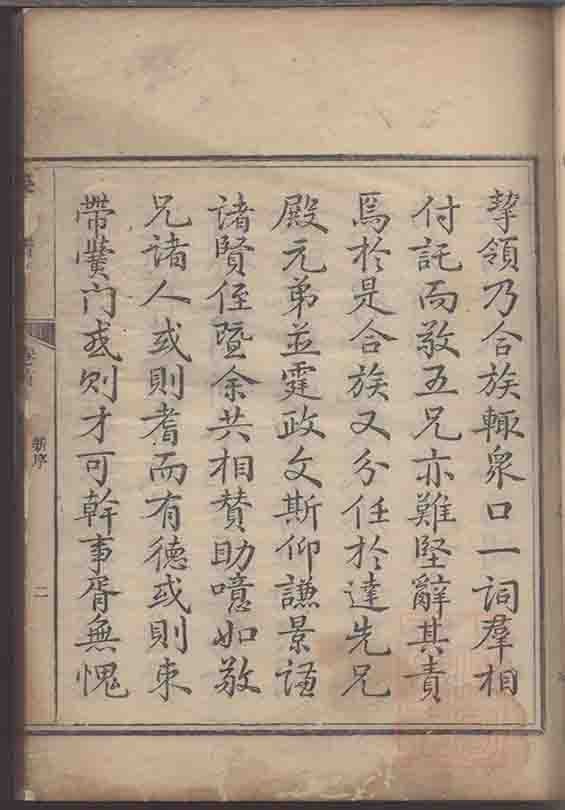 挈領乃合族輙衆口一詞羣相
付託而敬五兄亦難堅辭其責
焉於是合族又分任於達先兄
殿元弟並霆政文斯仰謙景謹
諸賢侄暨余共相贊助噫如敬
兄諸人或則耆而有德或則束
帶黌门或则才可幹事胥無愧
新序
二